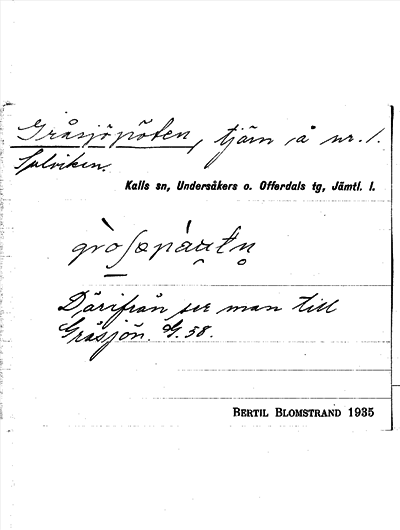 Gråsjöpöten, tjärn å nr. 1.
Salviken.
Kalls sn, Undersåkers o. Offerdals tg, Jämtl. l.
Därifrån ser man till
Gråsjön. G. 58.
BERTIL BLOMSTRAND 1935